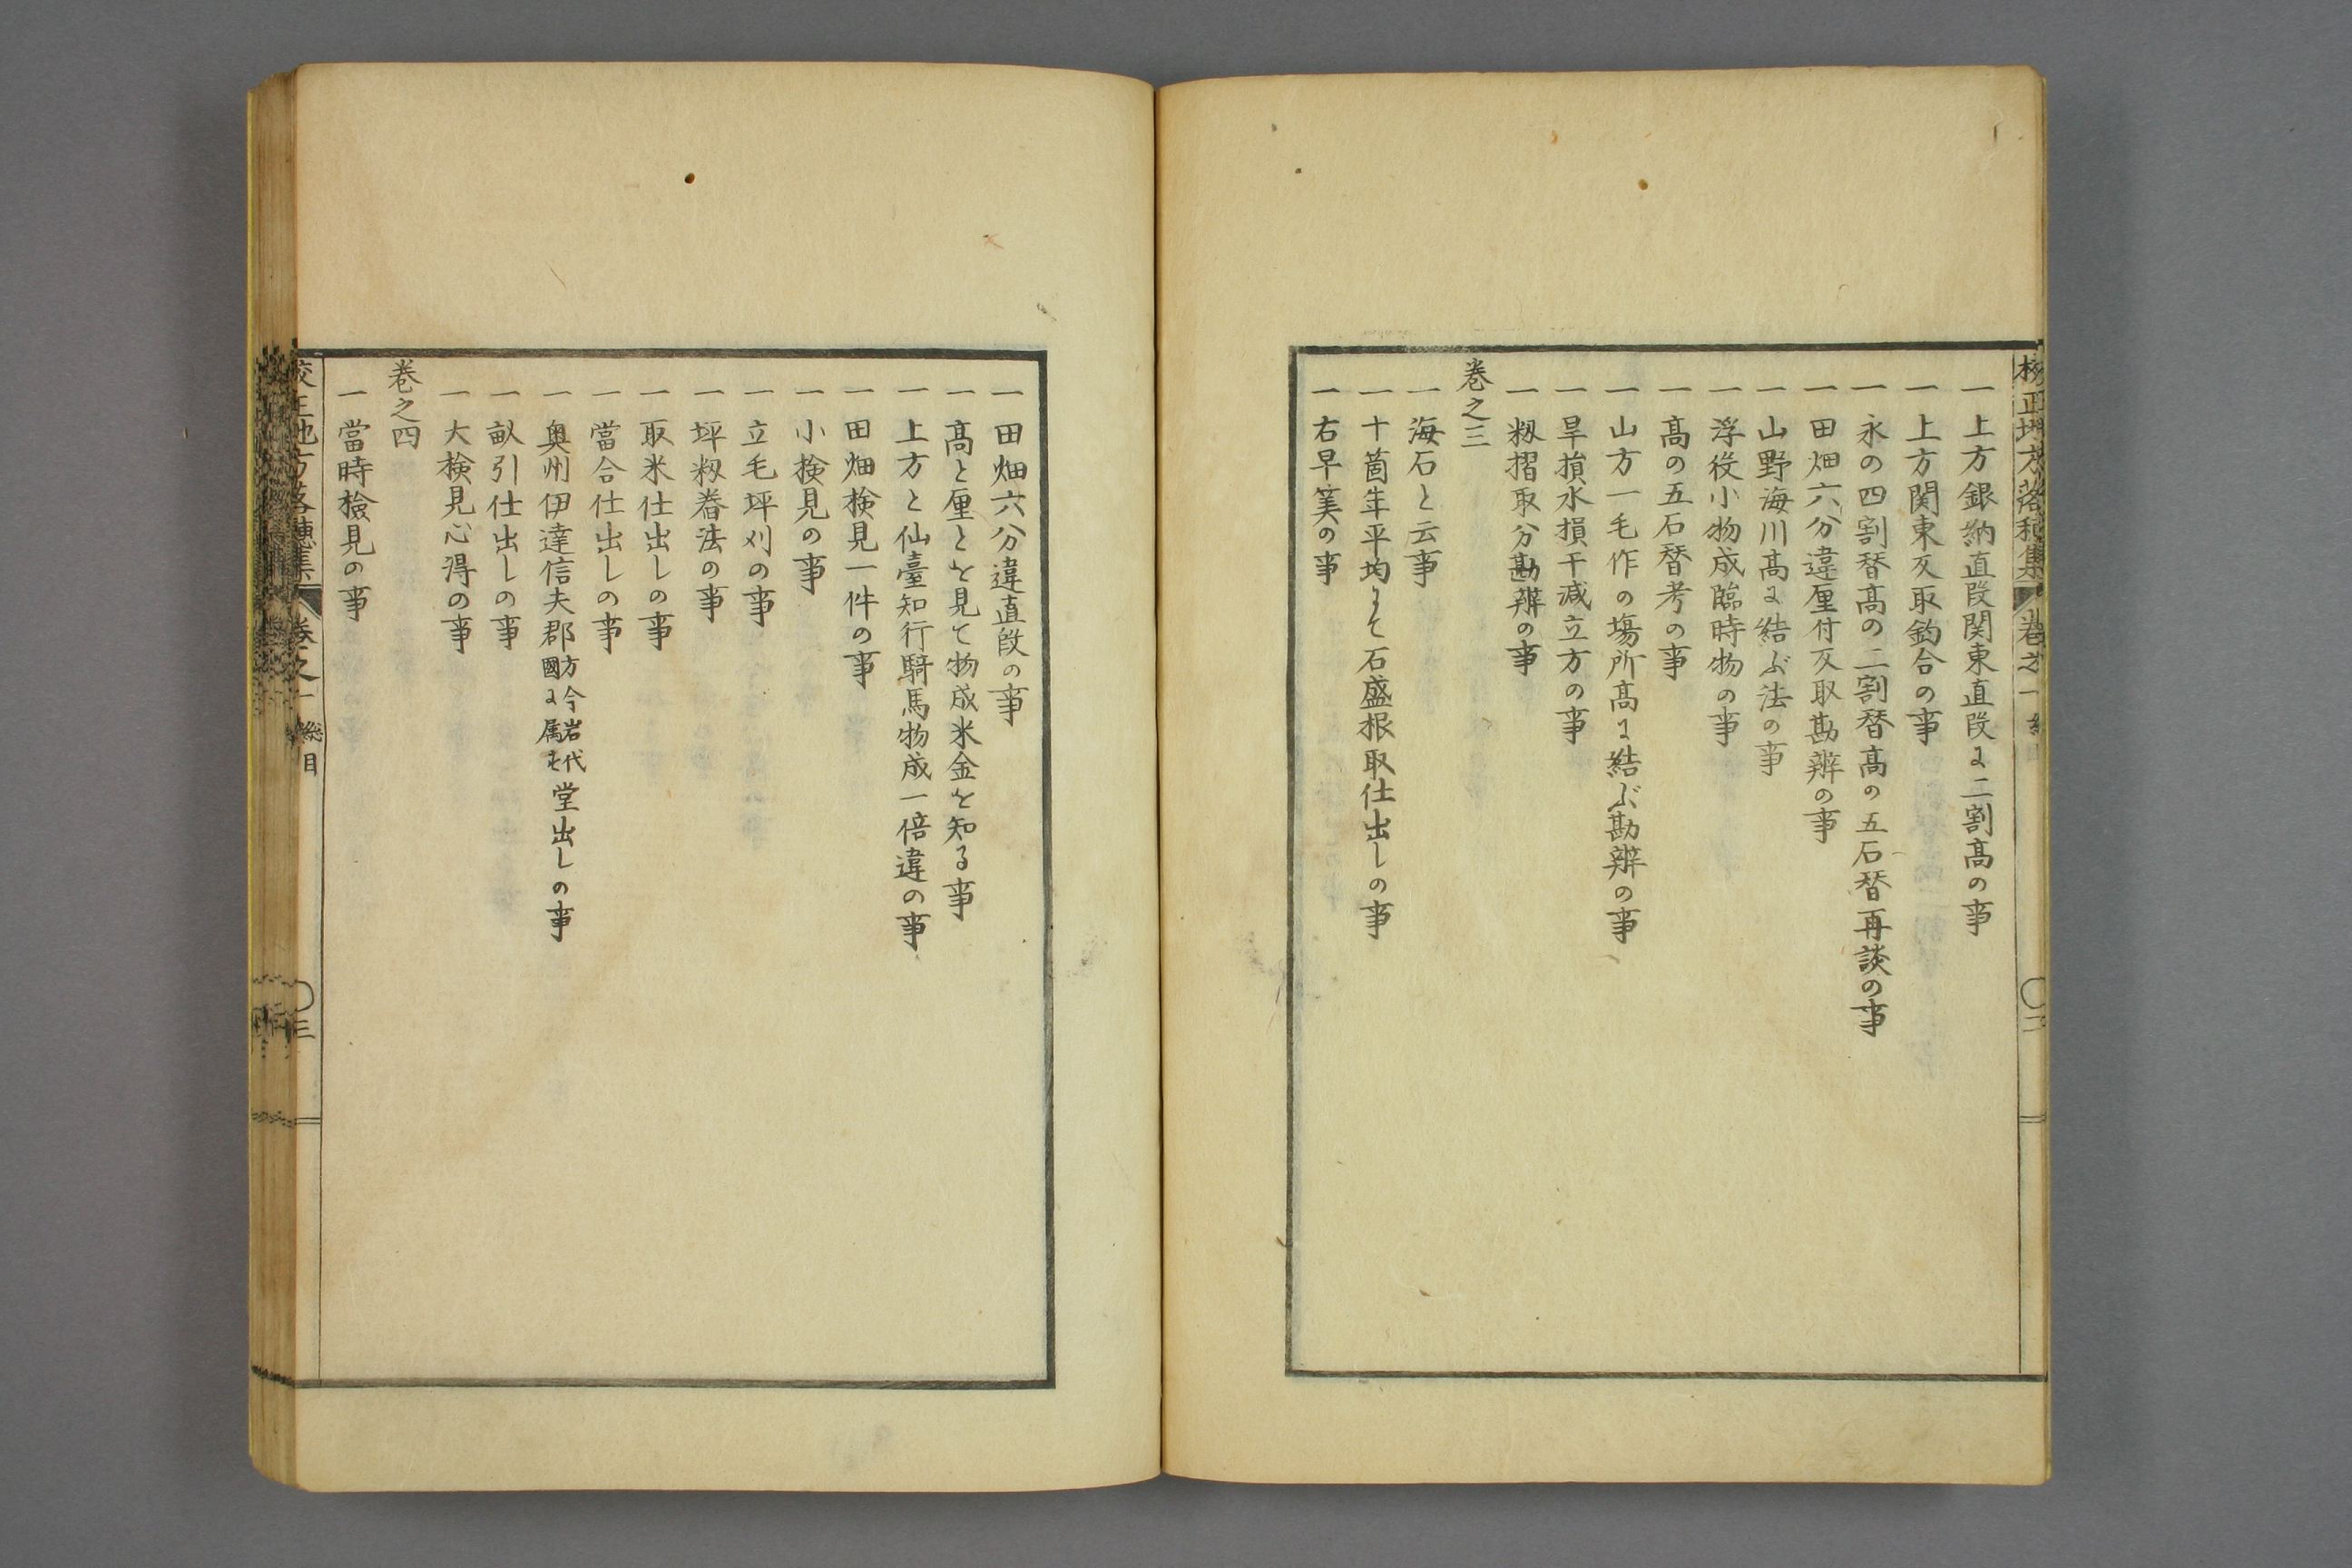 一 上方銀納直段関東直段に二割髙の事
一 上方関東反取釣合の事
一 永の四割替髙の二割替髙の五石替再談の事
一 田畑六分違厘付反取勘辨の事
一 山野海川髙に結ぶ法の事
一 浮役小物成臨時物の事
一 髙の五石替考の事
一 山方一毛作の塲所髙に結ぶ勘辨の事
一 旱損水損干減立方の事
一 籾摺取分勘辨の事
巻之三
一 海石と云事
一 十箇年平均にて石盛根取仕出しの事
一 右早筭の事
一 田畑六分違直段の事
一 髙と厘とを見て物成米金を知る事
一 上方と仙臺知行騎馬物成一倍違の事
一 田畑検見一件の事
一 小検見の事
一 立毛坪刈の事
一 坪籾舂法の事
一 取米仕出しの事
一 當合仕出しの事
一 奥州伊達信夫郡方今岩代國に属す堂出しの事
一 畝引仕出しの事
一 大検見心得の事
巻之四
一 當時撿見の事
校正地方落穂集 巻之一 総目 〇三